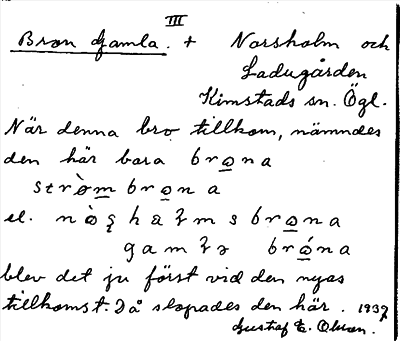 III
Bron Gamla. + Norsholm och
Ladugården
Kimstads sn. Ögl.
När denna bro tillkom, nämndes
den här bara bro̲na
strò̲m bro̲n a
el. nò̲ş haɫm s bro̲na
gamɫə bró̲na
blev det ju först vid den nyas
tillkomst. Då slopades den här. 1937
Gustaf E. Olson.